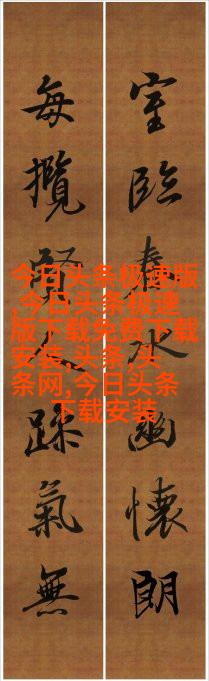 室臨春水幽懷朗
每攬賢躁氣無
今日头条极速版
,今日头条极速
版下载免费下载
安装,头条,头
条网,今日头条
下载安装